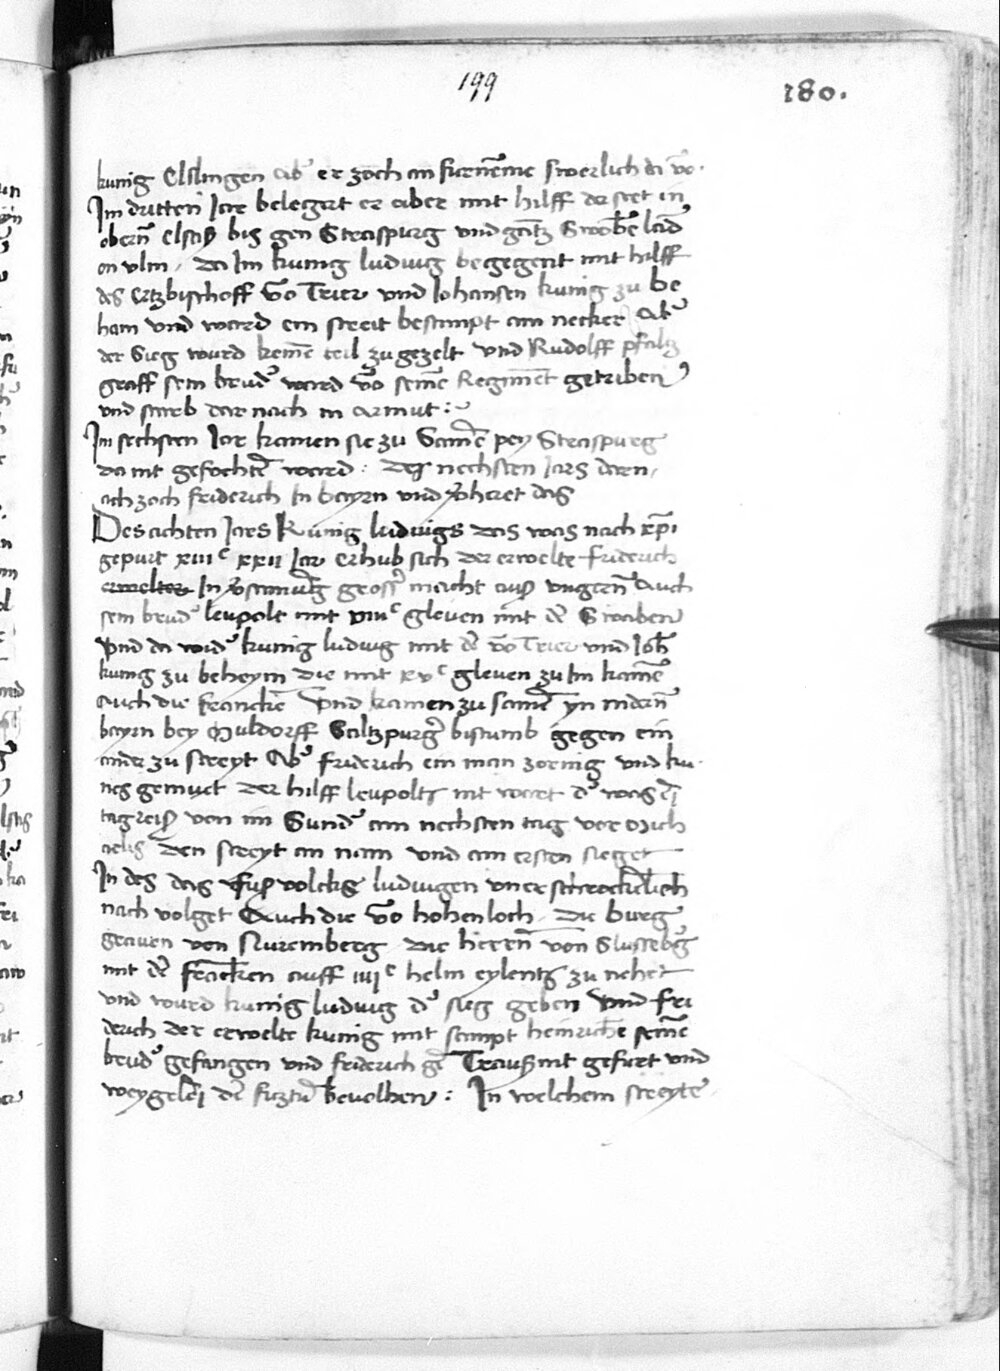 199
180.
kunig Elslingen Ab̾ er zoch an furnēme swerlich dā vō.
Im dritten Jare belegert er aber mit hilff der stet in
obern̄ elsaß bis gen Straspurg vnd gātz Swobē lād
on vlm, da Im kunig ludwig begegent mit hilff
des Ertzbischoff vō Trier vnd Johansen kunig zu be
ham vnd ward ein streit bestimpt am necker Ab̾
der Sieg wurd keinē teil zugezelt vnd Rudolff pfaltz
graff sein brud̾ ward vō seinē Regimēt getriben
vnd starb dar nach in armut :~
Im sechsten Jar kamen sie zu Samē pey Straspurg
da nit gefochtē ward : Des nechsten Jars darn
ach zoch friderich In bayrn vnd v̾heret das
Des achten Jares Kunig ludwigs das was nach xp̄i
gepurt xiiiᶜ xxii Jar Erhub sich der erwelte friderich
erwelter In Osterreich mit grosser macht auß vngern̄ Auch
sein brud̾ leupolt mit viiiᶜ gleuen mit dē Swaben
vnd da wid̾ kunig ludwig mit dē vō Trier vnd Joh̄
kunig zu beheym die mit xvᶜ gleuen zu Im kamē
Auch die franckē vnd kamen zu samē yn nidern̄
bayrn bey Muldorff Saltzpurg̾ bistumb gegen ein
ander zu streyt Ab̾ friderich ein man zornig vnd ku
nes gemuet der hilff leupolts nit wart d̾ was ei
tagreiß von im Sund̾ am nechsten tag vor Mich
aelis den streyt an nam vnd am ersten sieget
In des das fuß volcks ludwigen vnerschrockēlich
nach volget Auch die vō hohenloch, Die burg
grauen von Nuremberg die herrn̄ von Slusselb̾g
mit dē francken auff iiiiᶜ helm eylents zu nehet
vnd wurd kunig ludwig d̾ sieg geben vnd fri
derich der erwelte kunig mit sampt heinrichē seinē
brud̾ gefangen vnd friderich gē Traußnit gefurt vnd
weygelei dē fiztū beuolhen : In welchem streyte